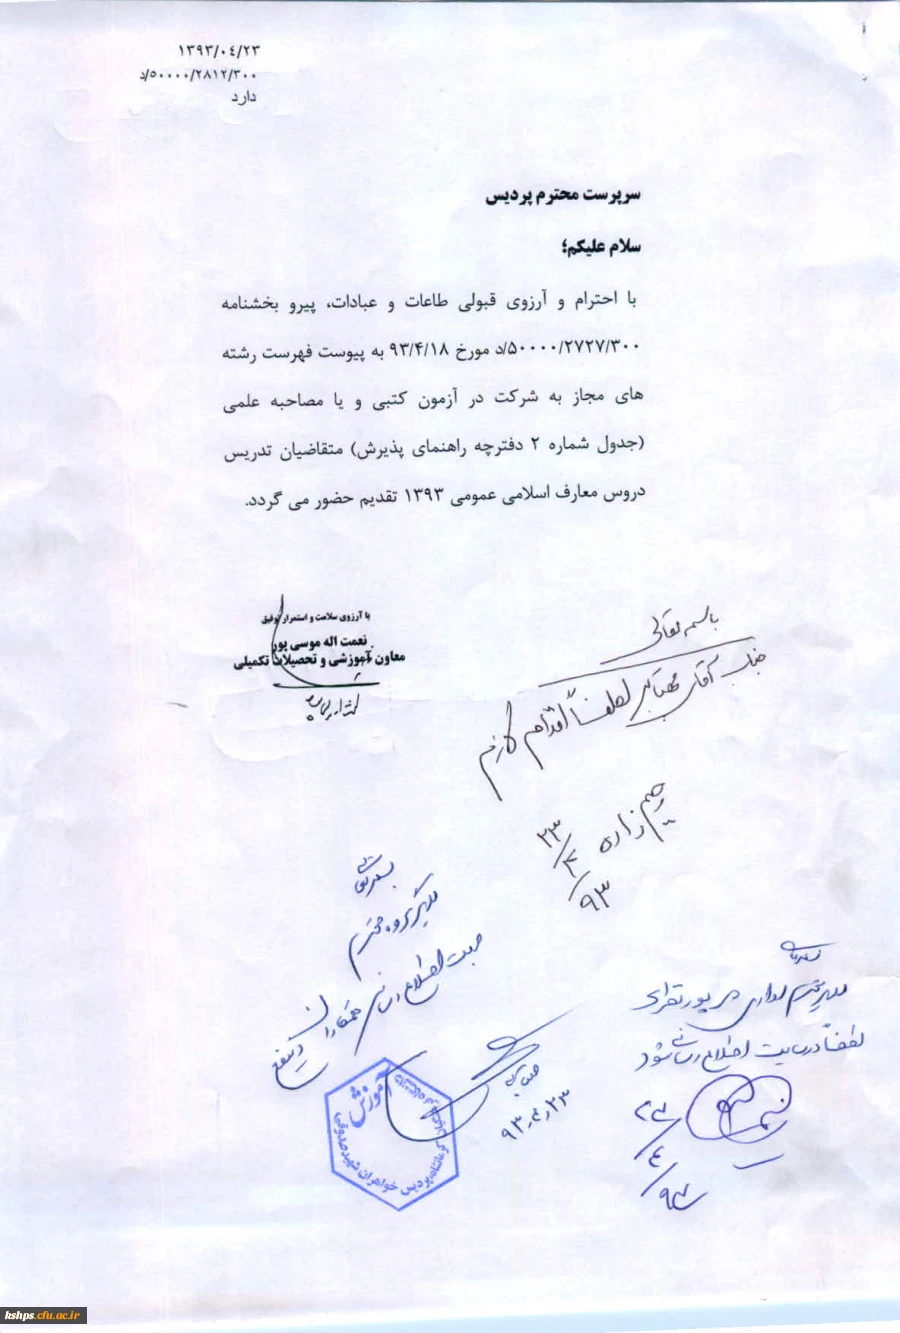 ۱۳۹۳/۰۴/۲۳
۵۰۰۰۰/۲۸۱۲/۳۰۰/د
دارد
سرپرست محترم پردیس
سلام علیکم؛
با احترام و آرزوی قبولی طاعات و عبادات، پیرو بخشنامه
۵۰۰۰۰/۲۷۲۷/۳۰۰/د مورخ ۹۳/۴/۱۸ به پیوست فهرست رشته
های مجاز به شرکت در آزمون کتبی و یا مصاحبه علمی
(جدول شماره ۲ دفترچه راهنمای پذیرش) متقاضیان تدریس
دروس معارف اسلامی عمومی ۱۳۹۳ تقدیم حضور می گردد.
با آرزوی سلامت و استمرار توفیق
نعمت اله موسی پور
معاون آموزشی و تحصیلات تکمیلی
باسمه تعالی
جناب آقای لطفاً اقدام لازم
۹۳/۴/۲۳
بسمه تعالی
مدیر گروه محترم
جهت اطلاع رسانی همکاران ذینفع
۹۳/۴/۲۳
آموزش
پردیس خواهران شهید صدوقی کرمانشاه
بسمه تعالی
مدیر محترم اداری
لطفاً در سایت اطلاع رسانی شود
۹۳/۴/۲۳
kshps.cfu.ac.ir